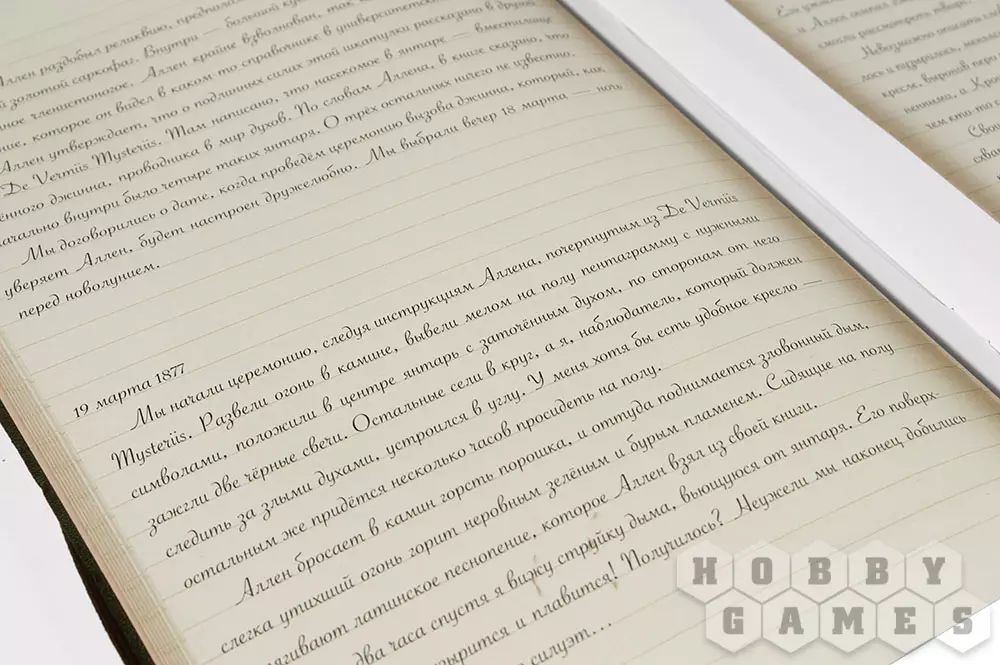 Аллен раздобыл реликвию, предпола
й золотой саркофаг. Внутри — большой ку
ное членистоногое. Аллен крайне взволнован, так
ние, которое он видел в каком-то справочнике в университетской
Аллен утверждает, что о подлинных силах этой шкатулки рассказано в другой
De Vermiis Mysteriis. Там написано, что насекомое в янтаре — вместилище
ённого джинна, проводника в мир духов. По словам Аллена, в книге сказано, что
начально внутри было четыре таких янтаря. О трёх остальных ничего не известно.
Мы договорились о дате, когда проведём церемонию вызова джинна, который, как
уверяет Аллен, будет настроен дружелюбно. Мы выбрали вечер 18 марта — ночь
перед новолунием.
19 марта 1877
Мы начали церемонию, следуя инструкциям Аллена, почерпнутым из De Vermiis
Mysteriis. Развели огонь в камине, вывели мелом на полу пентаграмму с нужными
символами, положили в центре янтарь с заточённым духом, по сторонам от него
зажгли две чёрные свечи. Остальные сели в круг, а я, наблюдатель, который должен
следить за злыми духами, устроился в углу. У меня хотя бы есть удобное кресло —
остальным же придётся несколько часов просидеть на полу.
Аллен бросает в камин горсть порошка, и оттуда поднимается зловонный дым,
слегка утихший огонь горит неровным зелёным и бурым пламенем. Сидящие на полу
затягивают латинское песнопение, которое Аллен взял из своей книги.
два часа спустя я вижу струйку дыма, вьющуюся от янтаря. Его поверх-
зырится и плавится! Получилось? Неужели мы наконец добились
силуэт...
Его уж
и Аллен
смогли рассмотреть
Невозможно описать
лось и пузырилось,
кресле, вырвав пер
венными, и Кр
чем кто-то
Сво
схва
HOBBY
GAMES